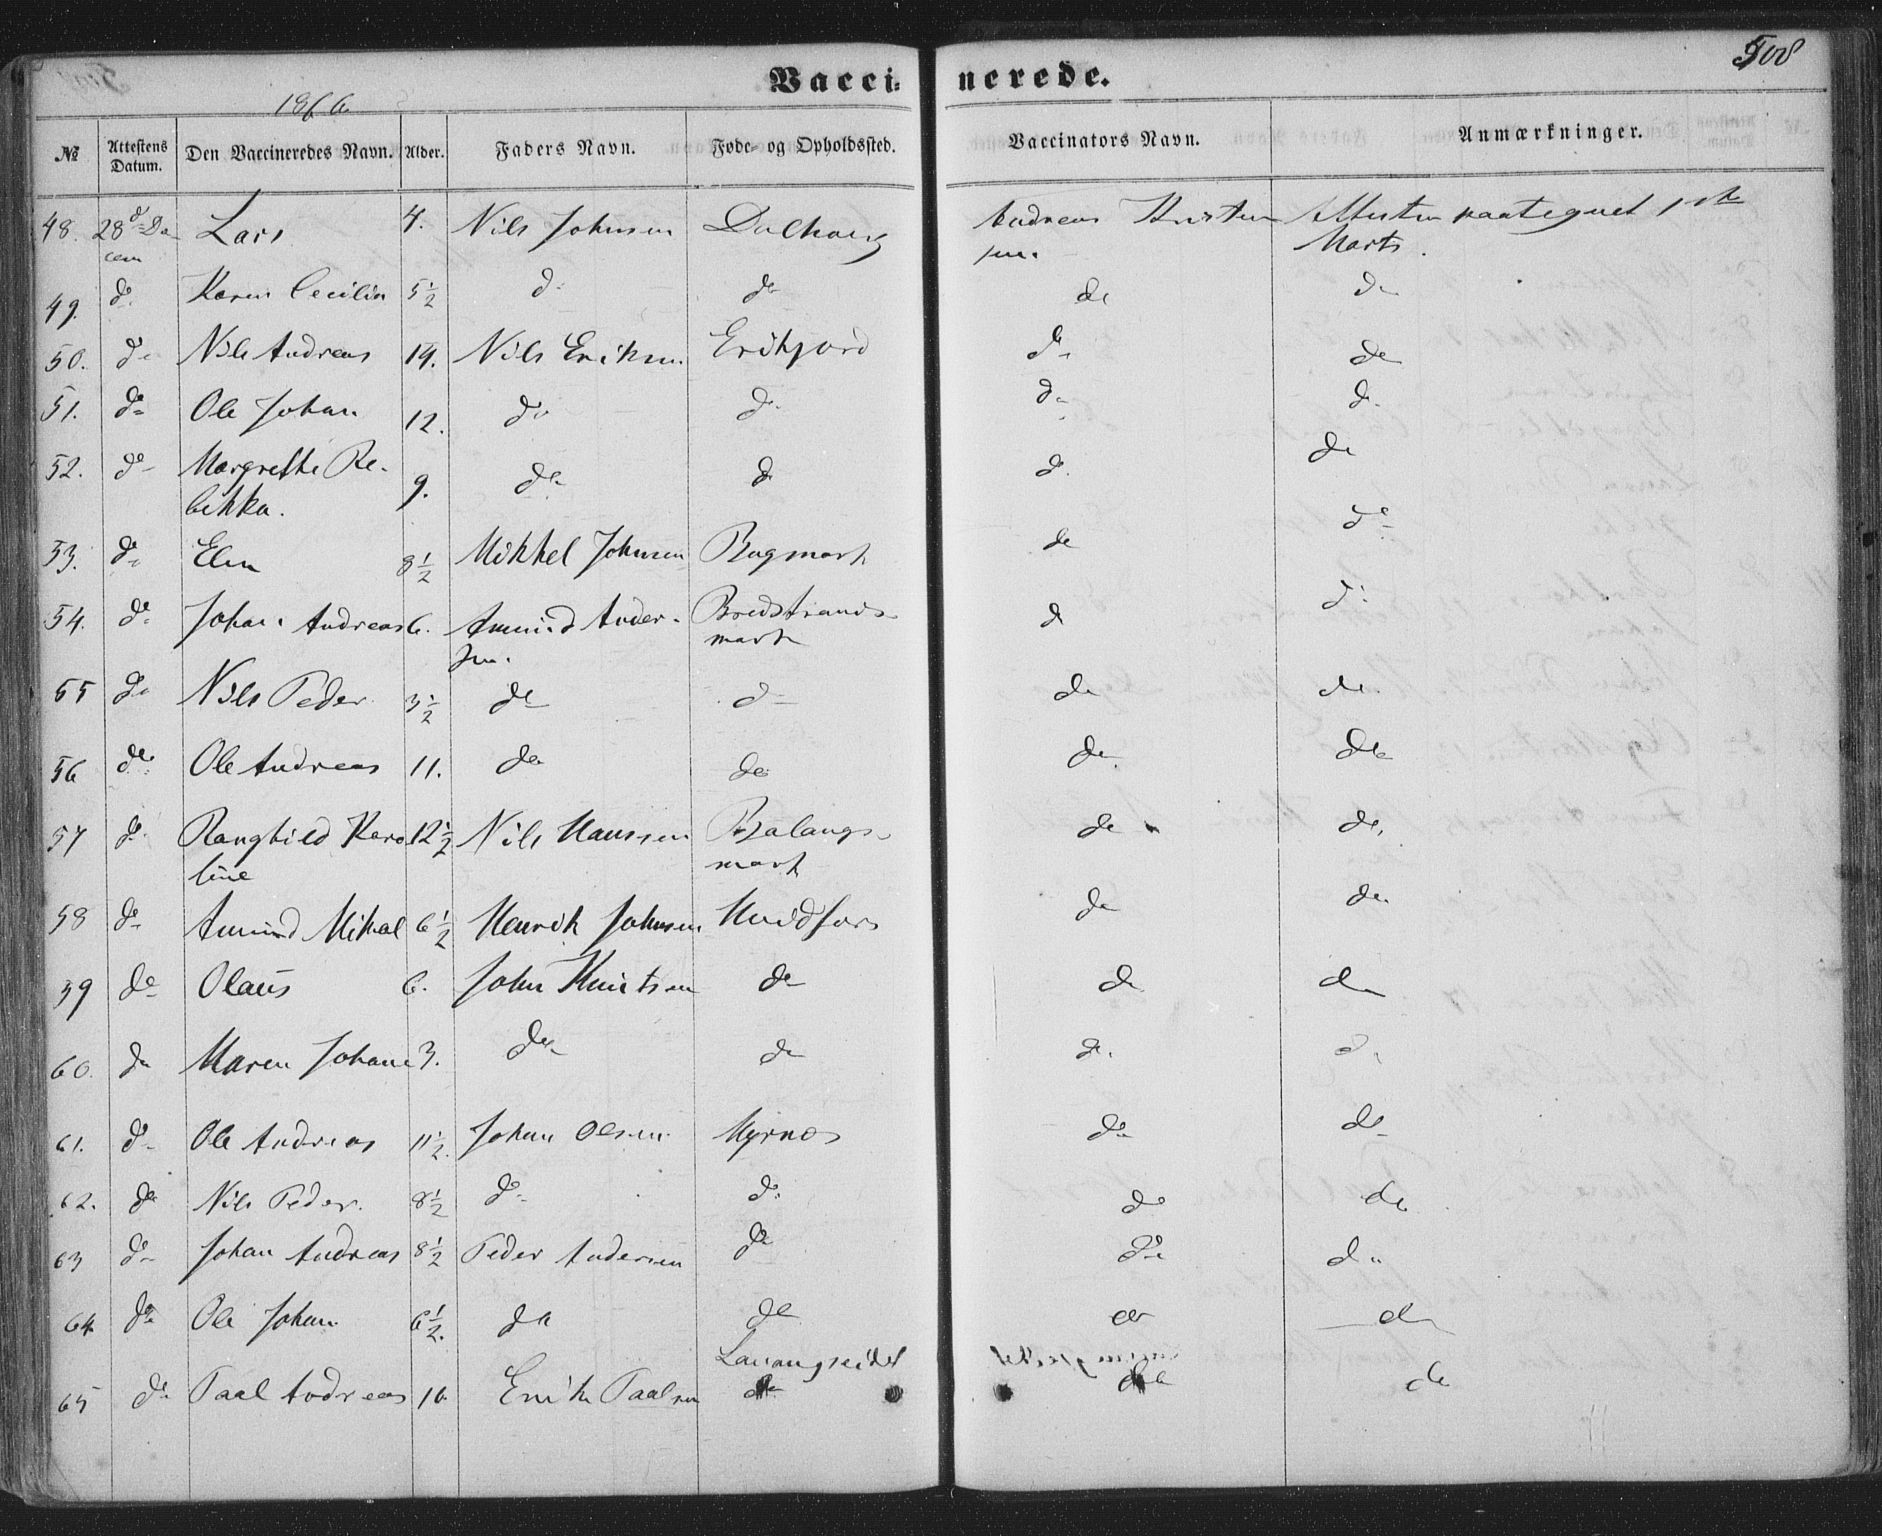 508
Vacci- nerede.
1866.
№ Attestens Datum. Den Vaccineredes Navn. Alder. Faders Navn. Føde- og Opholdssted. Vaccinators Navn. Anmærkninger.
48. 28 d De Lars 4. Nils Johnsen Andreas Kristen Attesten paategnet 1ste
cem sen. Marts.
49. do Karen Cecilia 5 1/2 do do do do
50. do Nils Andreas 14. Nils Eriksen Erikjord do do
51. do Ole Johan 12. do do do do
52. do Margrethe Re- 9. do do do do
bekka.
53. do Elen 8 1/2 Mikkel Johnsen Bogmark do do
54. do Johan Andreas 6. Amund Ander- Bredstrands- do do
sen. mark
55 do Nils Peder 3 1/2 do do do do
56 do Ole Andreas 11. do do do do
57 do Ranghild Karo 12 1/2 Nils Hanssen Balangs- do do
line mark
58 do Amund Mikal 6 1/2 Henrik Johnsen do do
59 do Olaus 6. John Knutsen do do do
60. do Maren Johane 3. do do do do
61. do Ole Andreas 11 1/2. Johan Olsen Myrnes do do
62. do Nils Peder. 8 1/2 do do do do
63 do Johan Andreas 8 1/2 Peder Andersen do do do
64 do Ole Johan 6 1/2. do do do do
Lavangseidet
65 do Paal Andreas 10 Erik Paalsen do do do